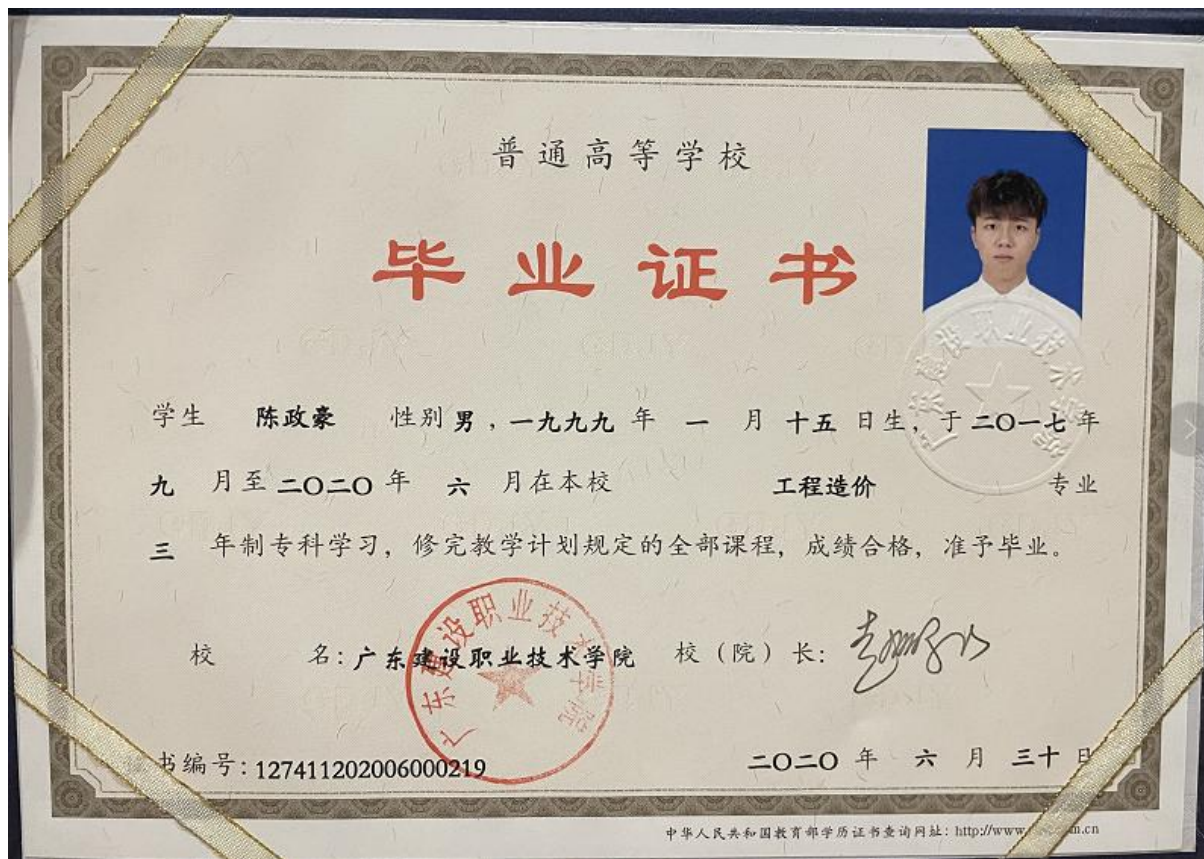 普通高等学校
毕业证书
学生 陈政豪 性别 男 , 一九九九 年 一 月 十五 日生, 于 二〇一七 年
九 月至 二〇二〇 年 六 月在本校 工程造价 专业
三 年制专科学习, 修完教学计划规定的全部课程, 成绩合格, 准予毕业。
校 名: 广东建设职业技术学院 校 (院) 长:
广东建设职业技术学院
广东建设职业技术学院
书编号: 127411202006000219
二〇二〇 年 六 月 三十 日
中华人民共和国教育部学历证书查询网址: http://www